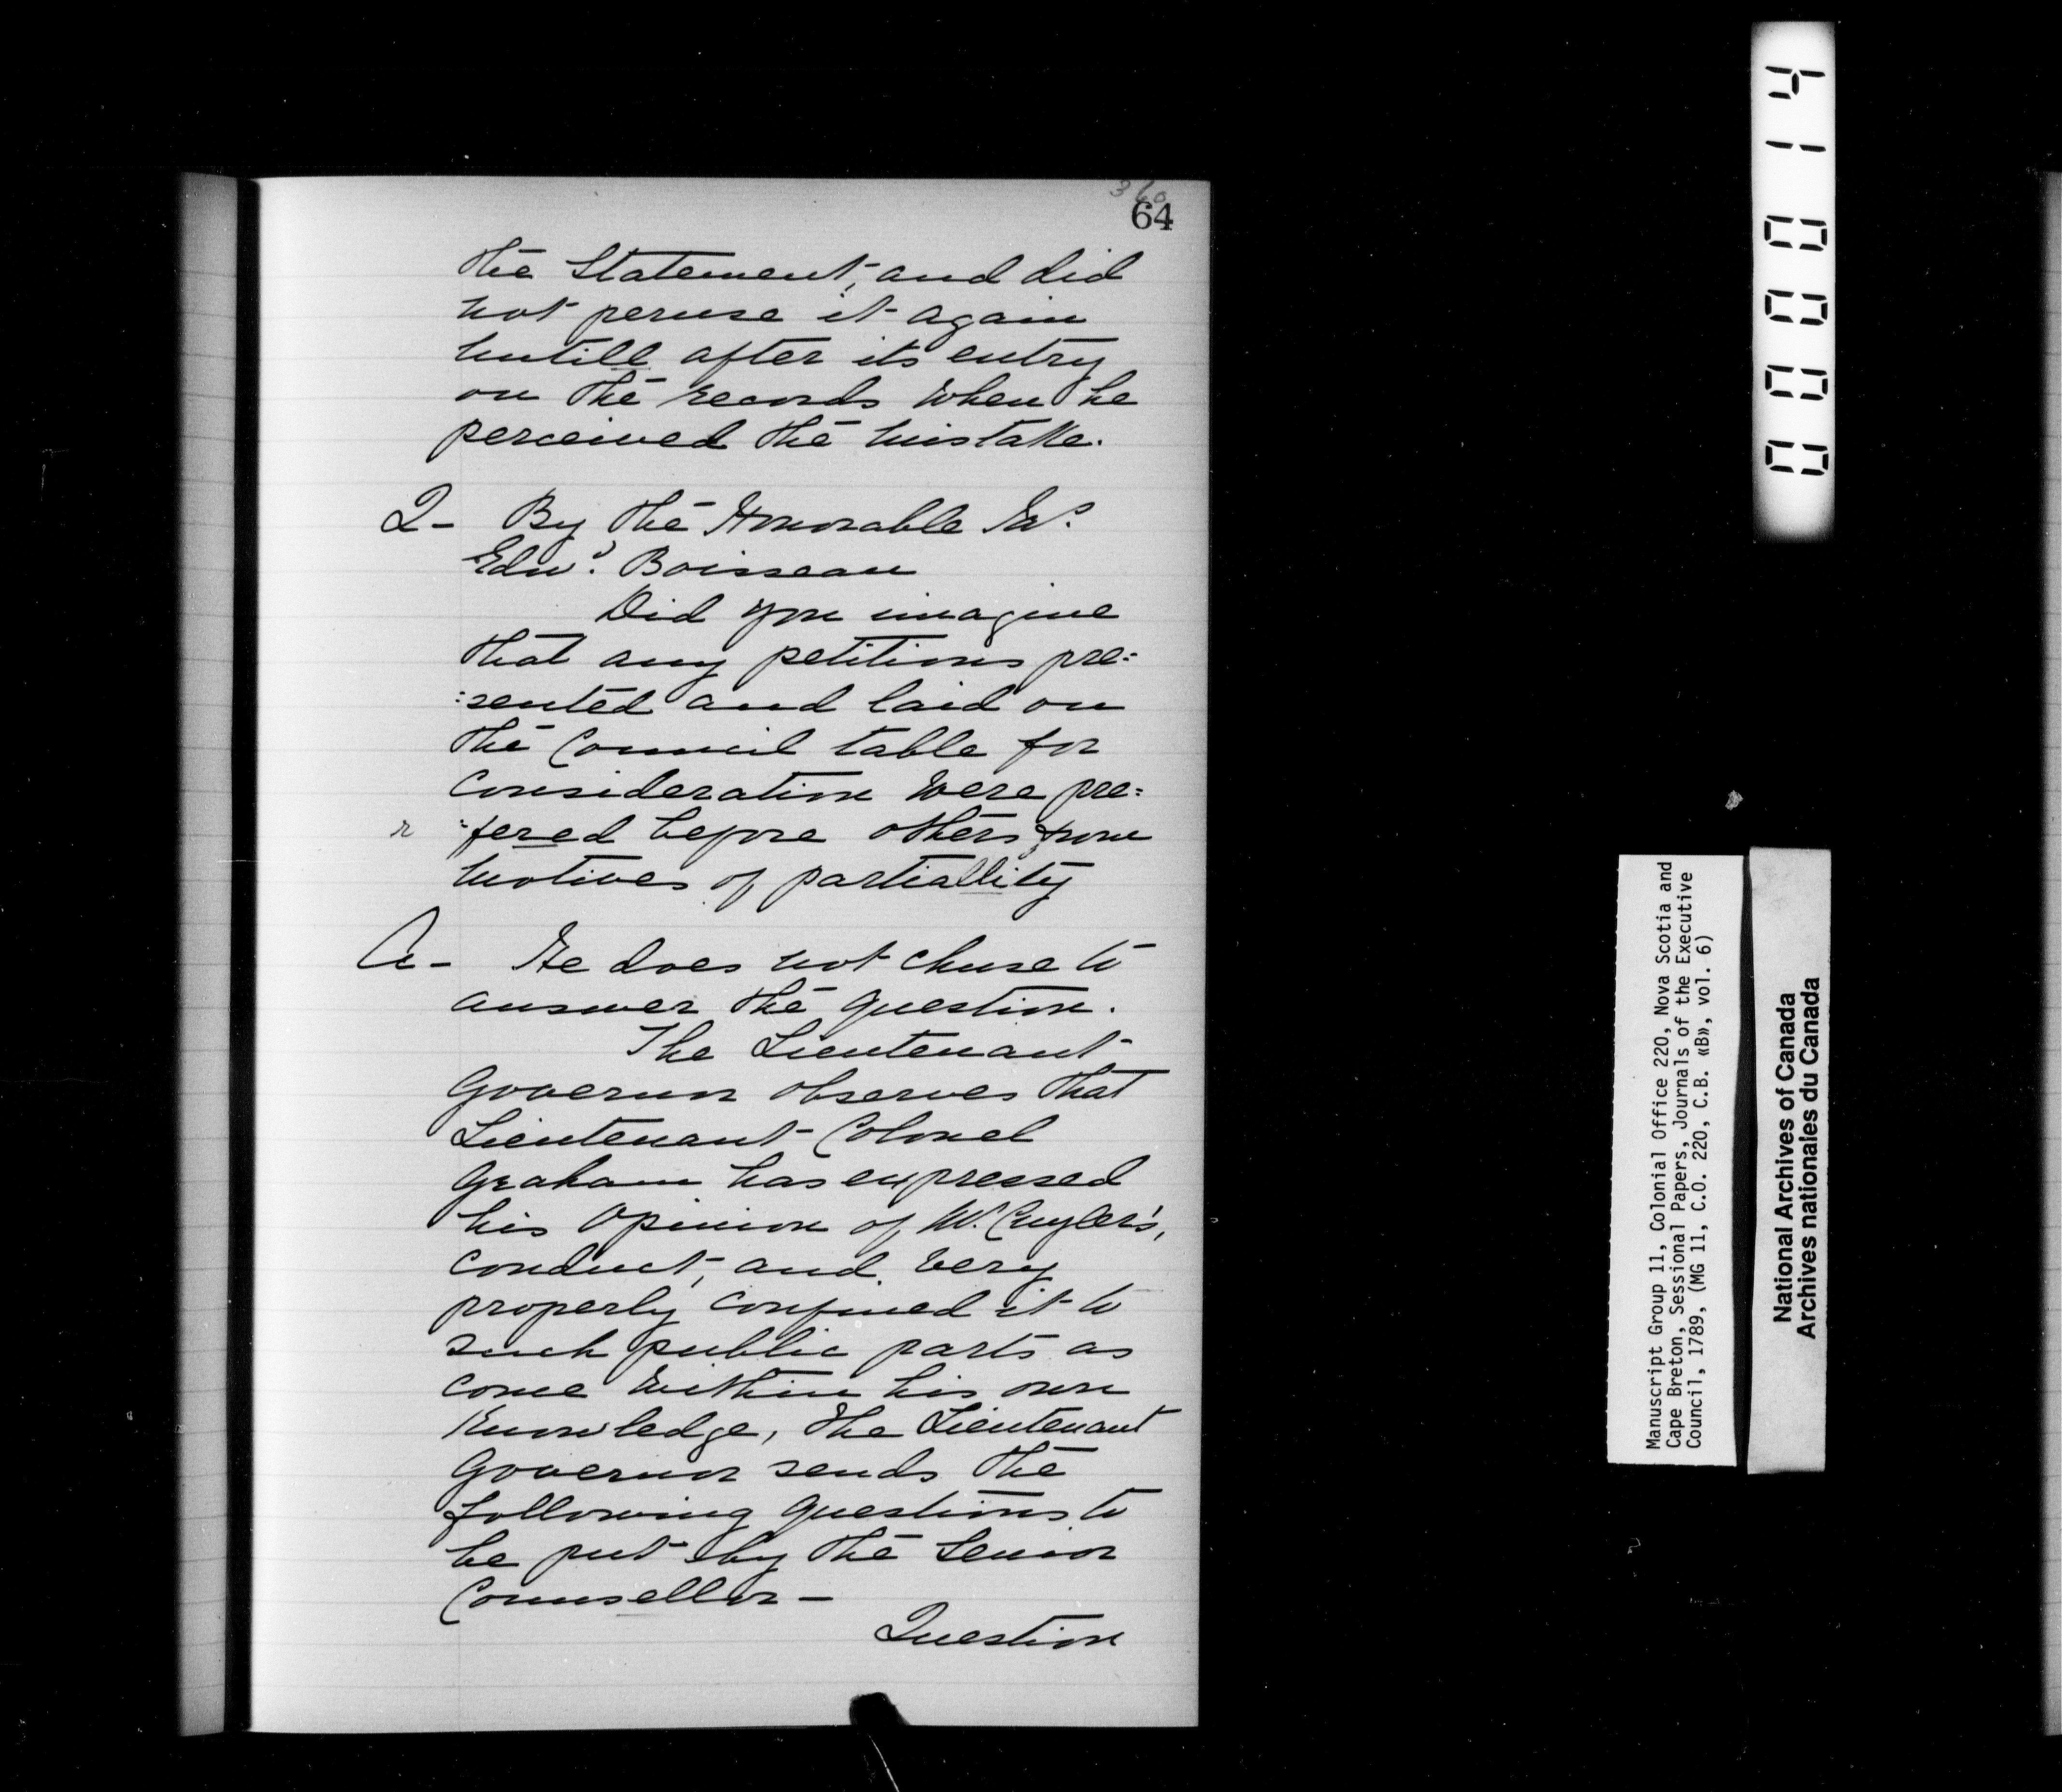 360
64
the Statement, and did
not peruse it again
untill after its entry
on the records when he
perceived the mistake.
Q- By the Honorable
Edwd. Boisseau
Did you imagine
that any petitions pre=
=sented and laid on
the Council table for
Consideration were pre=
r =fered before others from
motives of partiallity
A- He does not chuse to
answer the question.
The Lieutenant
Governor observes that
Lieutenant Colonel
Graham has expressed
his Opinion of Mr. Cuyler's,
conduct, and very
properly confined it to
such public parts as
come within his own
Knowledge, the Lieutenant
Governor sends the
following questions to
be put by the Senior
Counsellor —
Question
000014
Manuscript Group 11, Colonial Office 220, Nova Scotia and
Cape Breton, Sessional Papers, Journals of the Executive
Council, 1789, (MG 11, C.O. 220, C.B. «B», vol. 6)
National Archives of Canada
Archives nationales du Canada